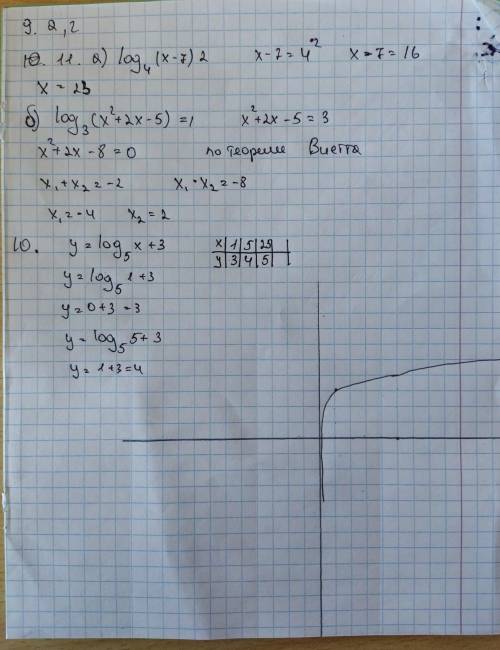 9. 2, г
10. 11. а) log₄(x-7) 2   x-7=4²   x-7=16
x = 23
б) log₃(x²+2x-5)=1   x²+2x-5=3
x²+2x-8=0   по теореме Виетта
x₁+x₂=-2   x₁·x₂=-8
x₁=-4   x₂=2
10. y=log₅x+3   x|1|5|25|
y=log₅1+3   y|3|4|5|
y=0+3=3
y=log₅5+3
y=1+3=4